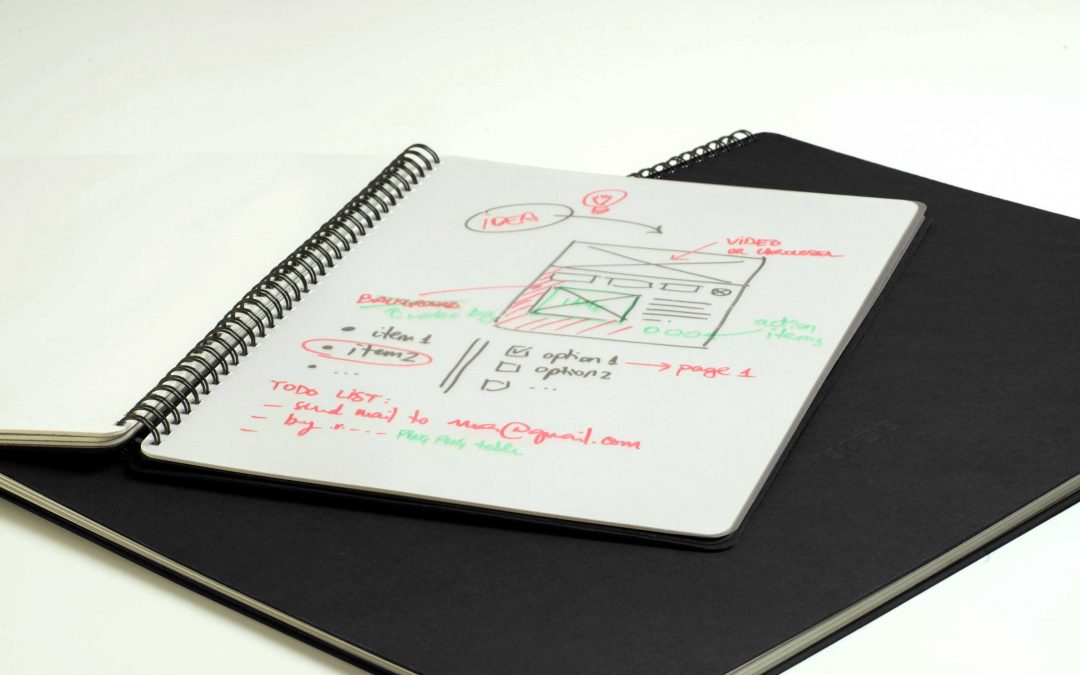 iDEA
ViDEO
OR CAROUSEL
BACKGROUND
action
items
item 1
item 2
...
option 1 → page 1
option 2
...
TODO LIST:
- send mail to
@gmail.com
- by
table